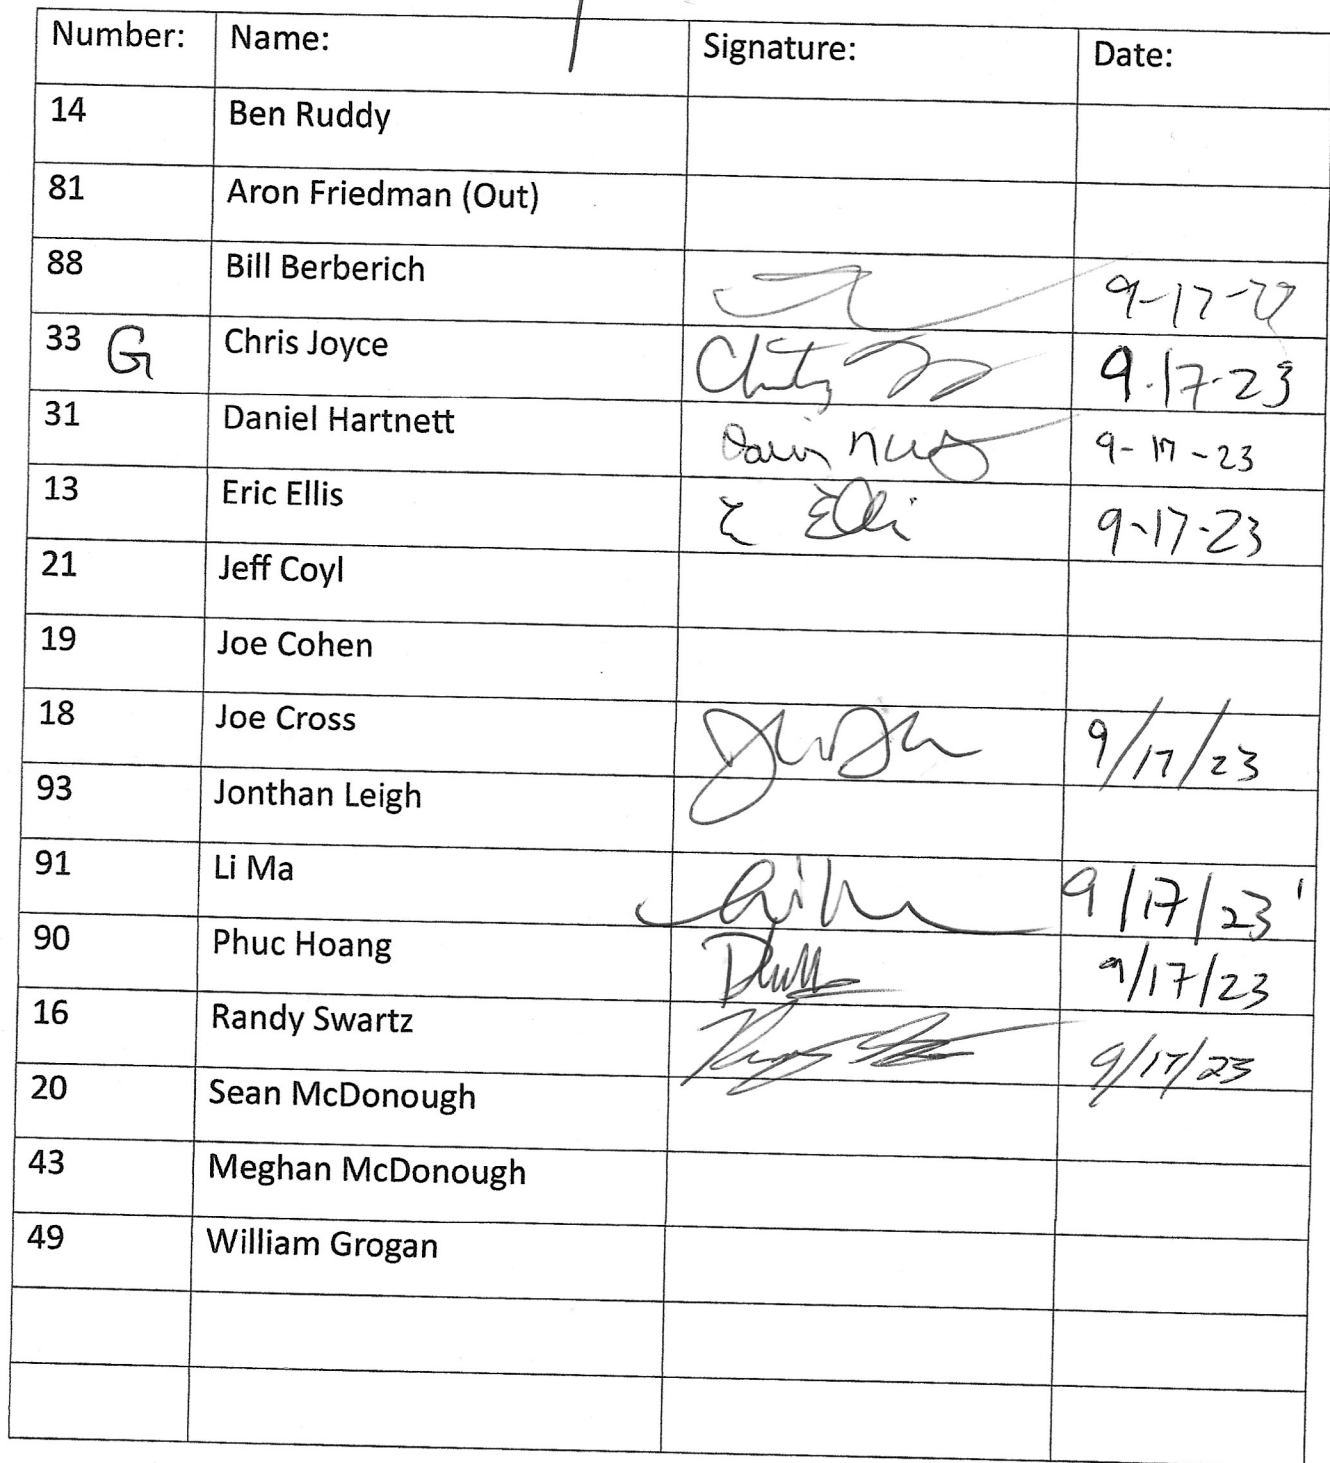 Number: Name: Signature: Date:
14 Ben Ruddy
81 Aron Friedman (Out)
88 Bill Berberich
33 G Chris Joyce 9.17.23
31 Daniel Hartnett 9-17-23
13 Eric Ellis E Elli 9-17-23
21 Jeff Coyl
19 Joe Cohen
18 Joe Cross 9/17/23
93 Jonthan Leigh
91 Li Ma 9/17/23
90 Phuc Hoang 9/17/23
16 Randy Swartz 9/17/23
20 Sean McDonough
43 Meghan McDonough
49 William Grogan